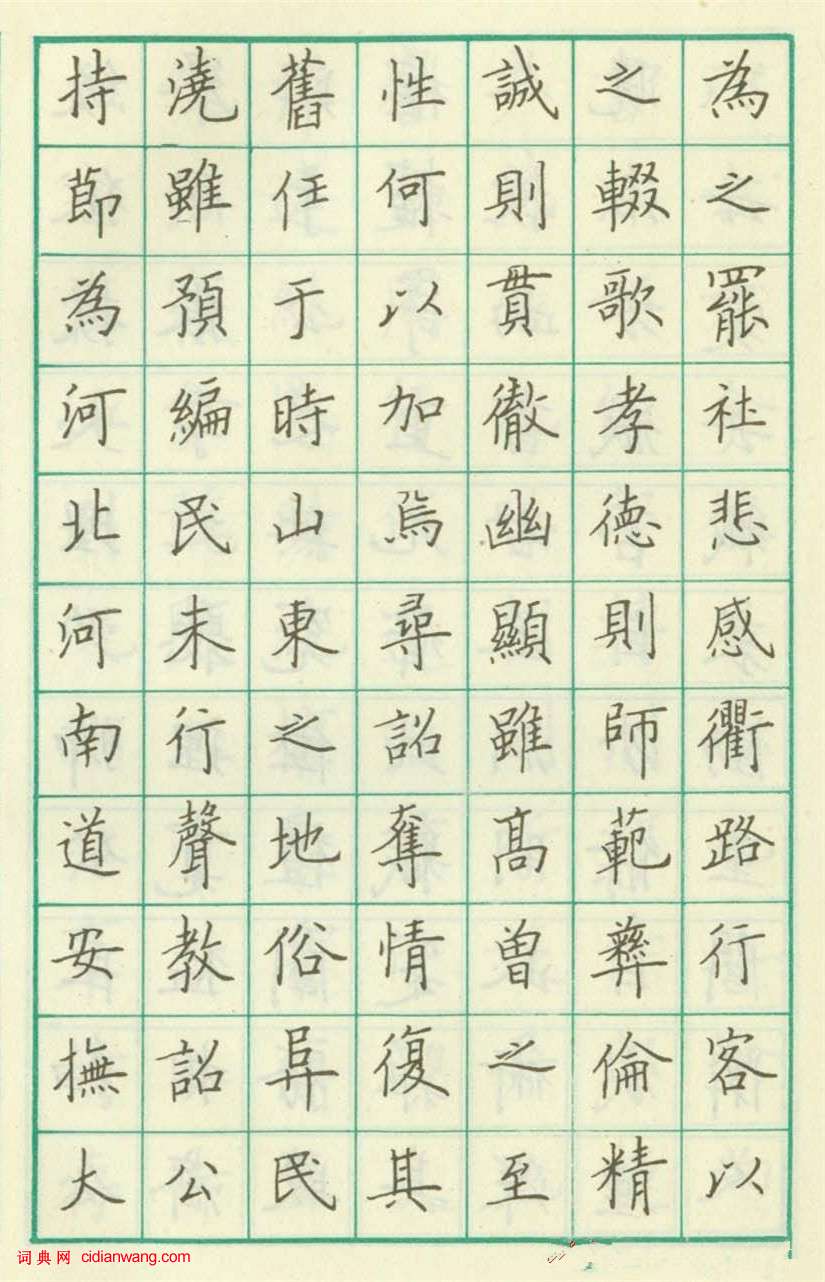 為之罷社悲感衢路行客以
之輟歌孝德則師範彝倫精
誠則貫徹幽顯雖高曾之至
性何以加焉尋詔奪情復其
舊任于時山東之地俗异民
澆雖預編民未行聲教詔公
持節為河北河南道安撫大
词典网 cidianwang.com